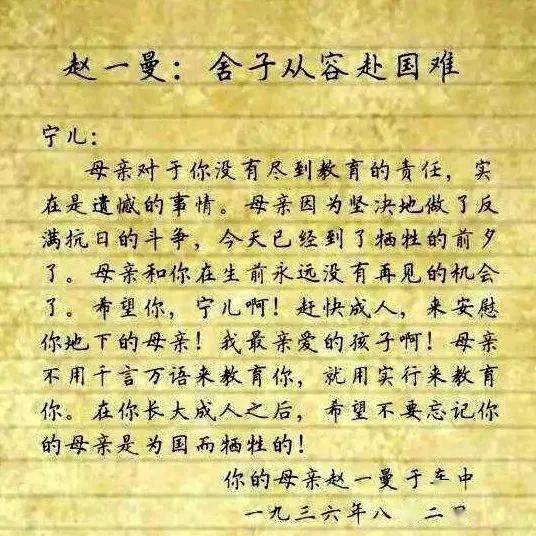 赵一曼：舍子从容赴国难
宁儿：
母亲对于你没有尽到教育的责任，实
在是遗憾的事情。母亲因为坚决地做了反
满抗日的斗争，今天已经到了牺牲的前夕
了。母亲和你在生前永远没有再见的机会
了。希望你，宁儿啊！赶快成人，来安慰
你地下的母亲！我最亲爱的孩子啊！母亲
不用千言万语来教育你，就用实行来教育
你。在你长大成人之后，希望不要忘记你
的母亲是为国而牺牲的！
你的母亲赵一曼于车中
一九三六年八 二